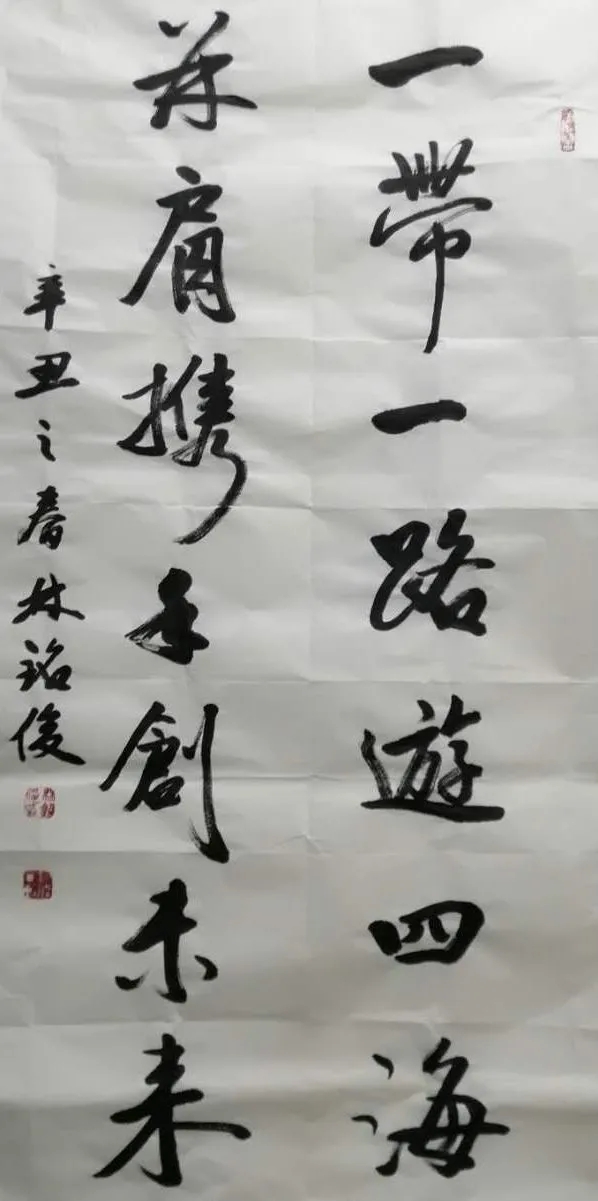 一帶一路遊四海
并肩携手創未来
辛丑之春林铭俊